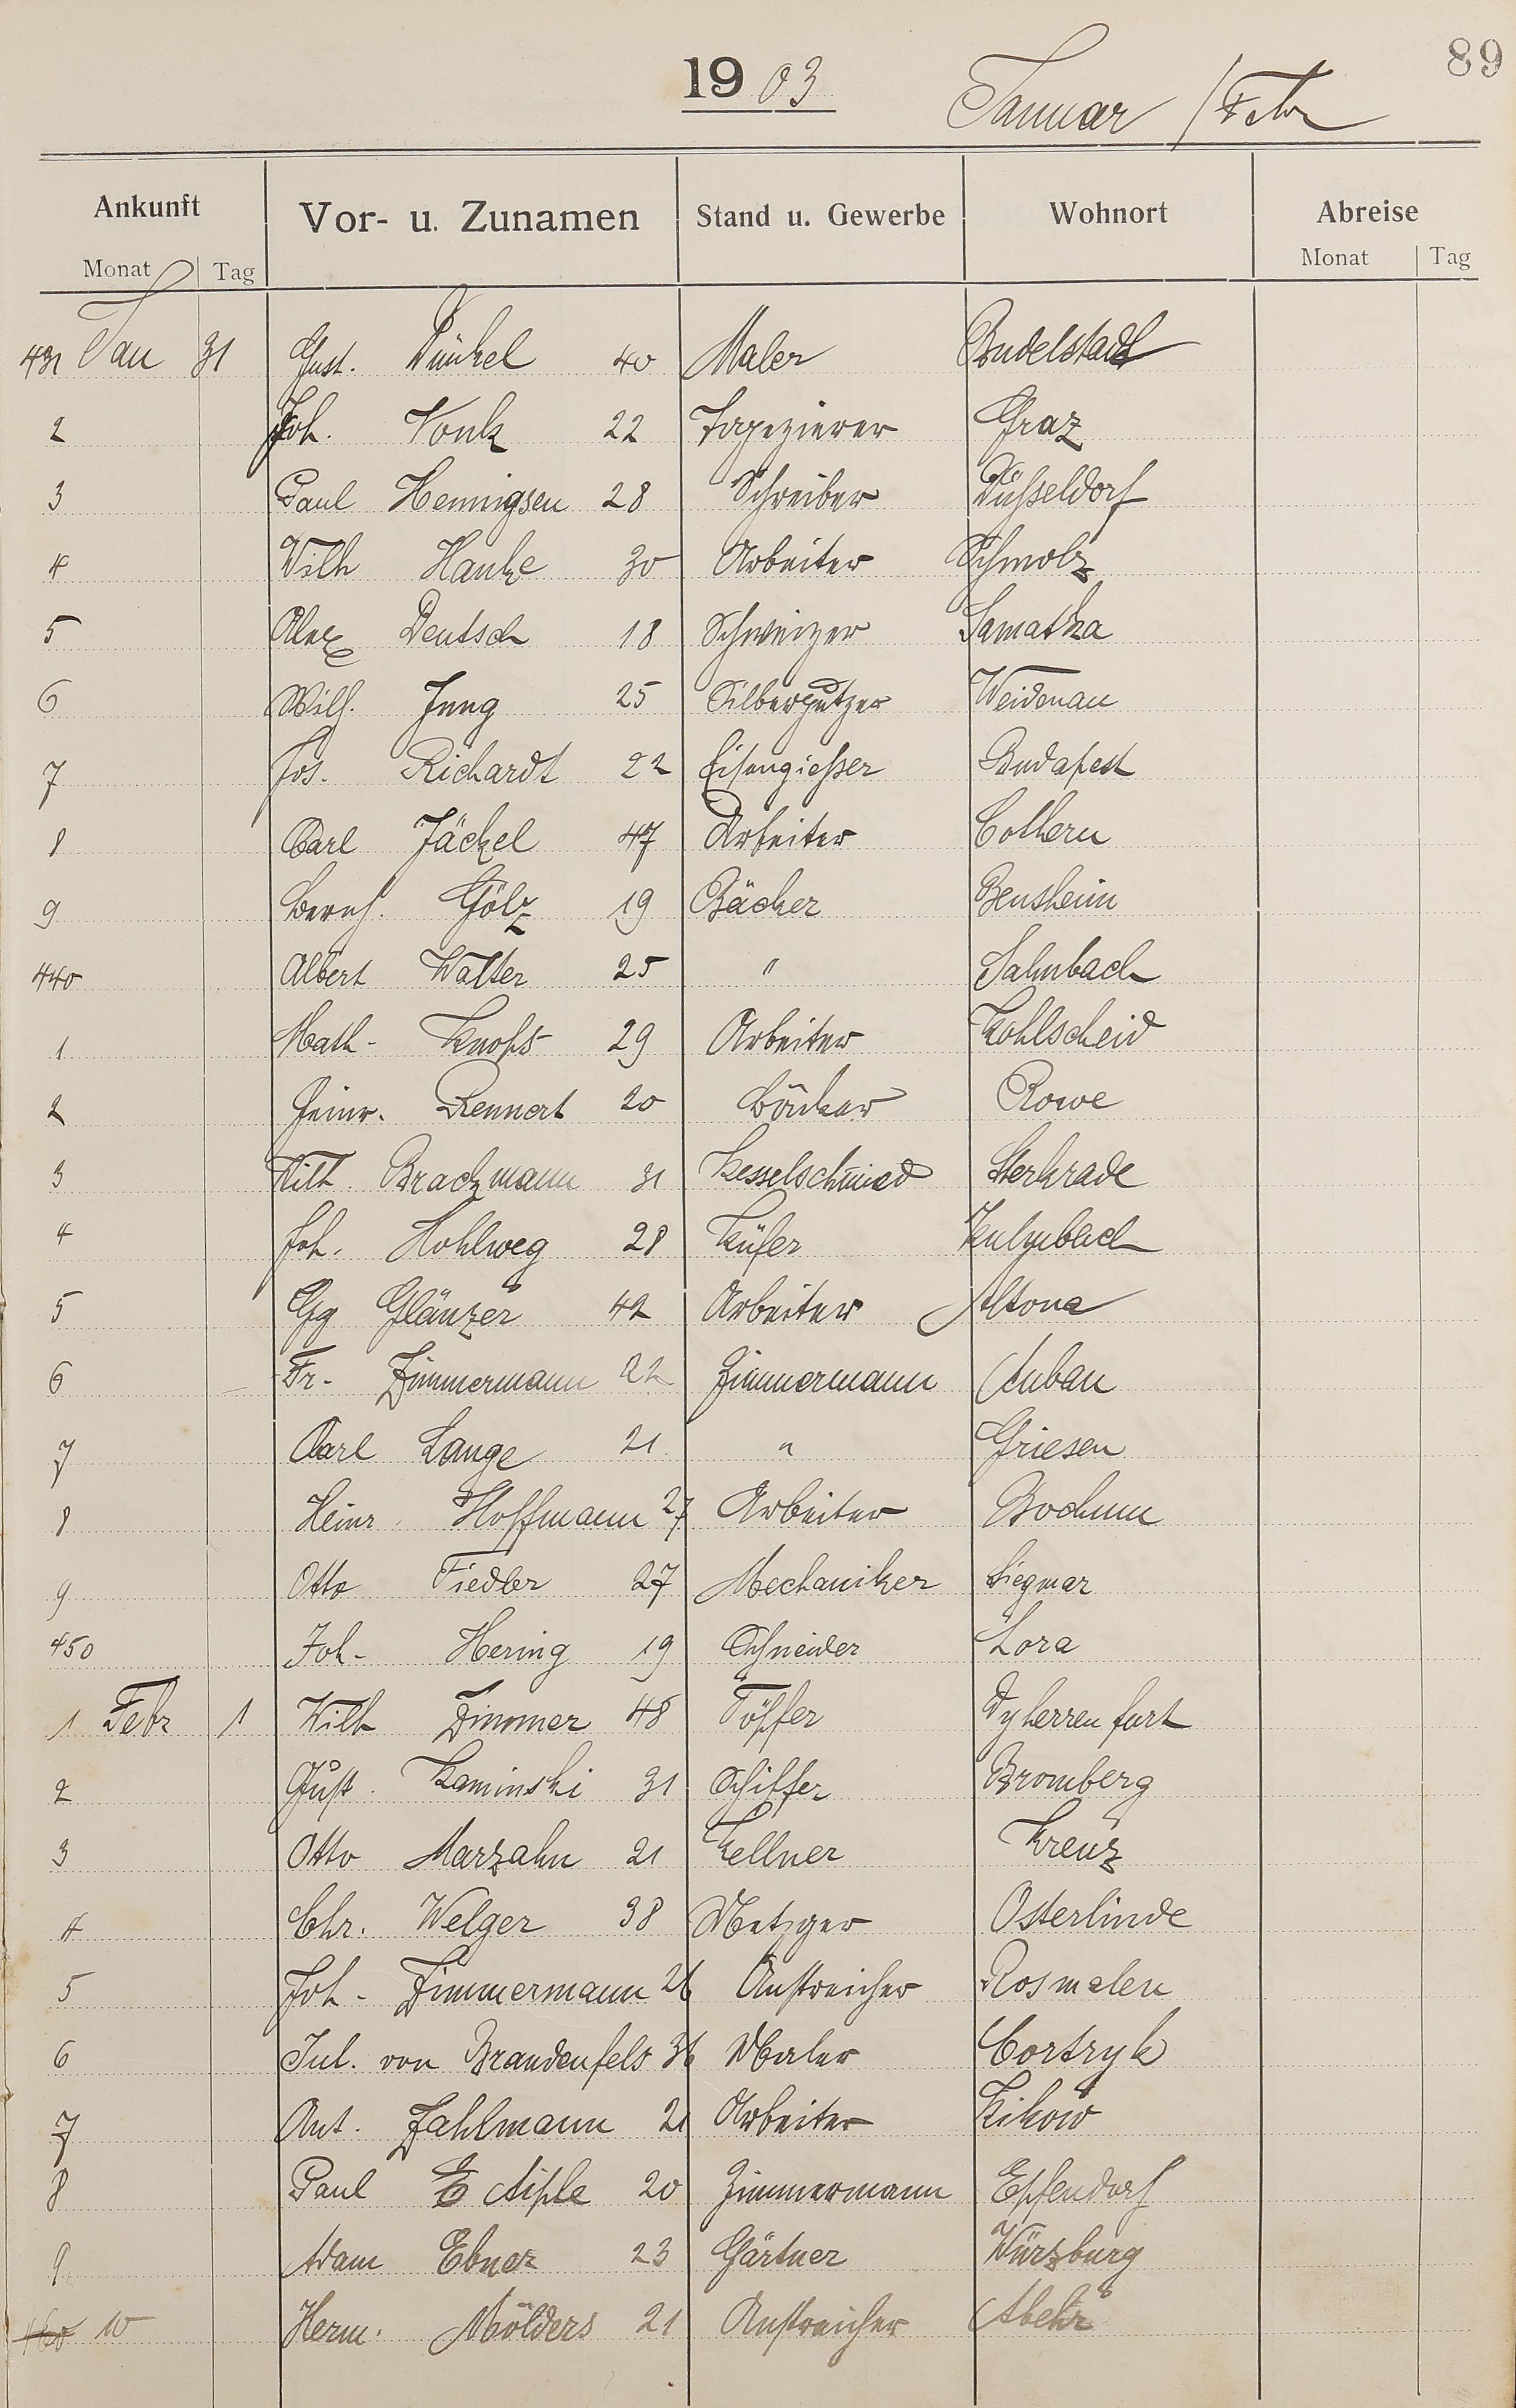 89
19 03 Januar / Febr
Ankunft Vor- u. Zunamen Stand u. Gewerbe Wohnort Abreise
Monat Tag Monat Tag
431 Jan 31 Gust. Dünkel 40 Maler Rudelstadt
2 Joh. Vonk 22 Tapezierer Graz
3 Paul Hennigsen 28 Schreiber Düsseldorf
4 Wilh Hanke 30 Arbeiter Schmolz
5 Alex Deutsch 18 Schweizer Samatka
6 Wilh. Jung 25 Silberputzer Weidenau
7 Jos. Richardt 22 Eisengießer Budapest
8 Carl Jäckel 47 Arbeiter Collern
9 Bernh. Gölz 19 Bäcker Bensheim
440 Albert Walter 25 " Salmbach
1 Math- Knops 29 Arbeiter Kohlscheid
2 Heinr. Rennert 20 Bäcker Rowe
3 Wilh. Brackmann 31 Kesselschmied Sterkrade
4 Joh. Hohlweg 28 Küfer Kulmbach
5 Gg Glänzer 42 Arbeiter Altona
6 Fr- Zimmermann 22 Zimmermann
7 Carl Lange 21 " Griesen
8 Heinr. Hoffmann 27 Arbeiter Bochum
9 Otto Fiedler 27 Mechaniker Siegmar
450 Joh- Hering 19 Schneider Lora
1 Febr 1 Wilh Zimmer 48 Töpfer Dyherrenfurt
2 Gust. Kaminski 31 Schiffer Bromberg
3 Otto Marzahn 21 Kellner Kreuz
4 Chr. Welger 38 Metzger Osterlinde
5 Joh- Zimmermann 26 Anstreicher Rosmalen
6 Jul. von Brandenfels 36 Maler Cortryk
7 Ant. Zahlmann 21 Arbeiter Kikow
8 Paul E Aiple 20 Zimmermann Epfendorf
9 Adam Ebner 23 Gärtner Würzburg
460 10 Herm. Mölders 21 Anstreicher